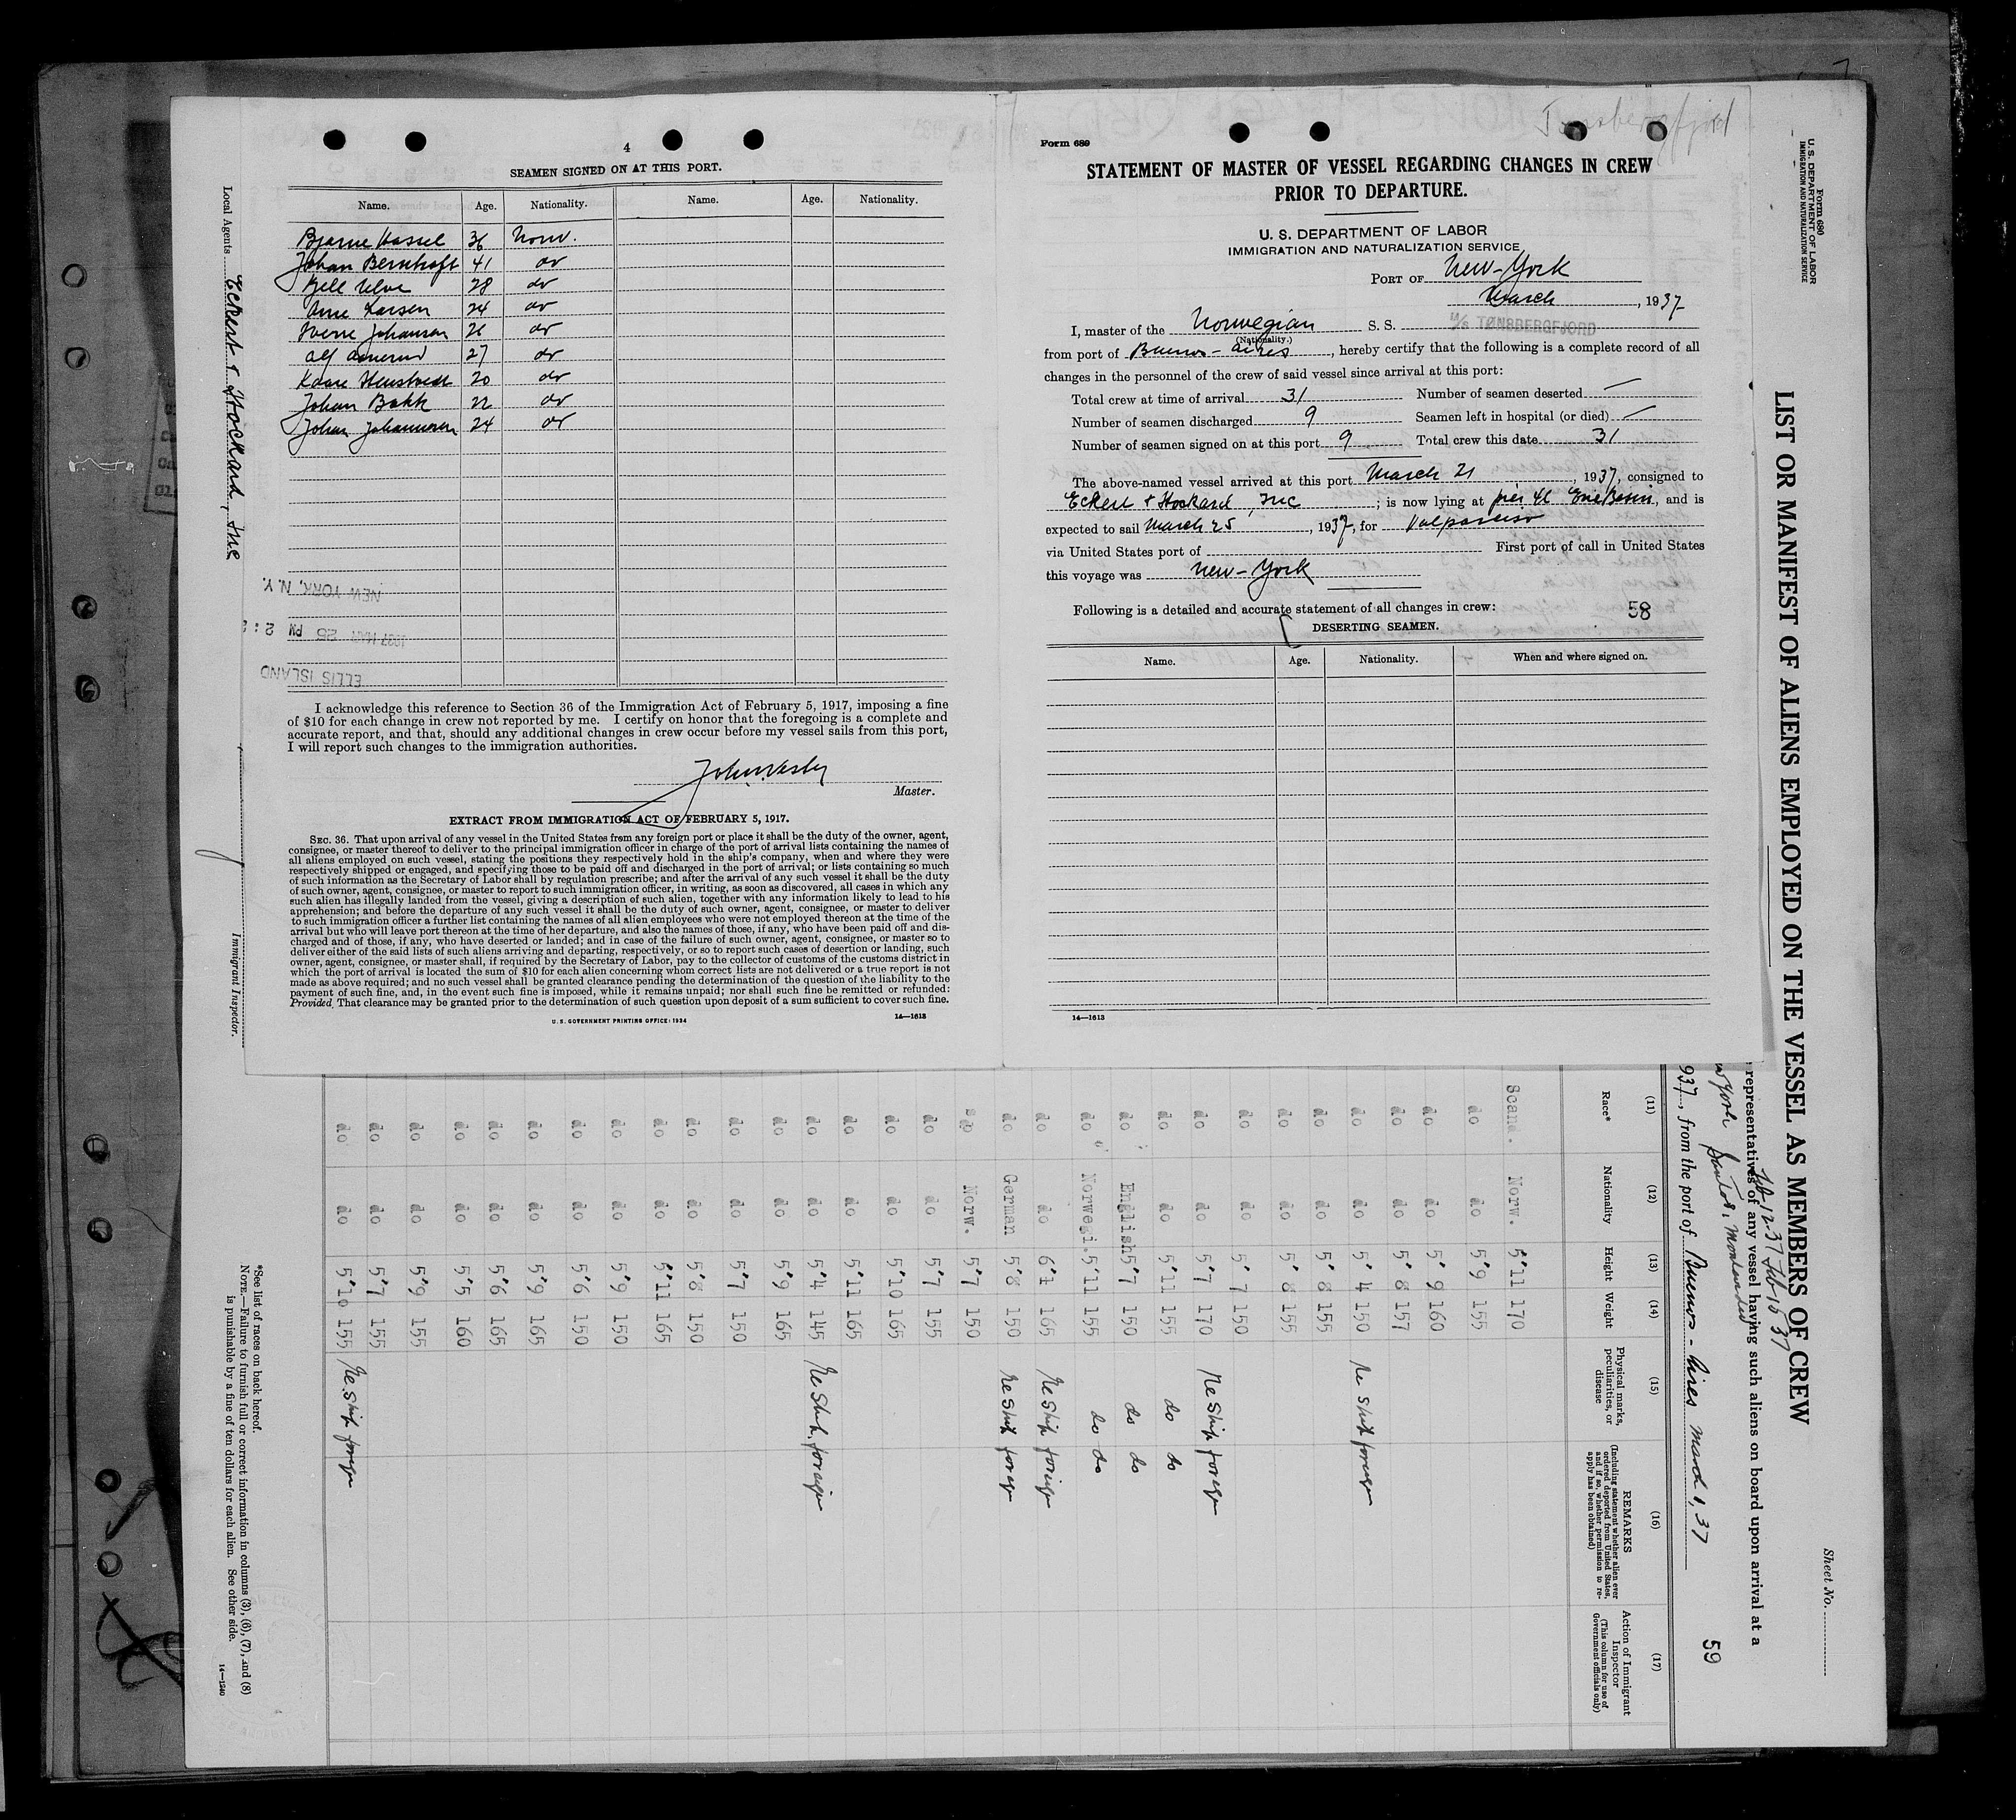 4
SEAMEN SIGNED ON AT THIS PORT.
Name. Age. Nationality. Name. Age. Nationality.
Bjarne Hassel 36 Norw.
Johan Berntroft 41 do
Kjell Ulve 28 do
Arne Larsen 24 do
Sverre Johansen 26 do
Alf 27 do
Kaare 20 do
Johan Bakk 22 do
Johan Johannesen 24 do
NEW YORK, N.Y.
1937 MAR 25 PM 2:
ELLIS ISLAND
I acknowledge this reference to Section 36 of the Immigration Act of February 5, 1917, imposing a fine
of $10 for each change in crew not reported by me. I certify on honor that the foregoing is a complete and
accurate report, and that, should any additional changes in crew occur before my vessel sails from this port,
I will report such changes to the immigration authorities.
Master.
EXTRACT FROM IMMIGRATION ACT OF FEBRUARY 5, 1917.
SEC. 36. That upon arrival of any vessel in the United States from any foreign port or place it shall be the duty of the owner, agent,
consignee, or master thereof to deliver to the principal immigration officer in charge of the port of arrival lists containing the names of
all aliens employed on such vessel, stating the positions they respectively hold in the ship's company, when and where they were
respectively shipped or engaged, and specifying those to be paid off and discharged in the port of arrival; or lists containing so much
of such information as the Secretary of Labor shall by regulation prescribe; and after the arrival of any such vessel it shall be the duty
of such owner, agent, consignee, or master to report to such immigration officer, in writing, as soon as discovered, all cases in which any
such alien has illegally landed from the vessel, giving a description of such alien, together with any information likely to lead to his
apprehension; and before the departure of any such vessel it shall be the duty of such owner, agent, consignee, or master to deliver
to such immigration officer a further list containing the names of all alien employees who were not employed thereon at the time of the
arrival but who will leave port thereon at the time of her departure, and also the names of those, if any, who have been paid off and dis-
charged and of those, if any, who have deserted or landed; and in case of the failure of such owner, agent, consignee, or master so to
deliver either of the said lists of such aliens arriving and departing, respectively, or so to report such cases of desertion or landing, such
owner, agent, consignee, or master shall, if required by the Secretary of Labor, pay to the collector of customs of the customs district in
which the port of arrival is located the sum of $10 for each alien concerning whom correct lists are not delivered or a true report is not
made as above required; and no such vessel shall be granted clearance pending the determination of the question of the liability to the
payment of such fine, and, in the event such fine is imposed, while it remains unpaid; nor shall such fine be remitted or refunded:
Provided, That clearance may be granted prior to the determination of such question upon deposit of a sum sufficient to cover such fine.
U. S. GOVERNMENT PRINTING OFFICE: 1934 14—1613
Tønsbergfjord
Form 689
STATEMENT OF MASTER OF VESSEL REGARDING CHANGES IN CREW
PRIOR TO DEPARTURE.
U. S. DEPARTMENT OF LABOR
IMMIGRATION AND NATURALIZATION SERVICE
PORT OF New-York
March, 1937
I, master of the Norwegian S. S. M/S TØNSBERGFJORD
(Nationality.)
from port of Buenos-Aires, hereby certify that the following is a complete record of all
changes in the personnel of the crew of said vessel since arrival at this port:
Total crew at time of arrival 31 Number of seamen deserted —
Number of seamen discharged 9 Seamen left in hospital (or died) —
Number of seamen signed on at this port 9 Total crew this date 31
The above-named vessel arrived at this port March 21, 1937, consigned to
Eckert & Stockard, Inc; is now lying at pier 41 Erie Basin, and is
expected to sail March 25, 1937, for Valparaiso
via United States port of First port of call in United States
this voyage was New-York
Following is a detailed and accurate statement of all changes in crew: 58
DESERTING SEAMEN.
Name. Age. Nationality. When and where signed on.
14—1613
Local Agents Eckert & Stockard, Inc
Immigrant Inspector.
Form 680
U. S. DEPARTMENT OF LABOR
IMMIGRATION AND NATURALIZATION SERVICE
Sheet No.
LIST OR MANIFEST OF ALIENS EMPLOYED ON THE VESSEL AS MEMBERS OF CREW
representatives of any vessel having such aliens on board upon arrival at a
Feb 12-37 Feb 18 37
w York Santos, Montevideo
937, from the port of Buenos-Aires March 1, 37
59
(11) (12) (13) (14) (15) (16) (17)
Race* Nationality Height Weight Physical marks, peculiarities, or disease
REMARKS
(Including statement whether alien ever ordered deported from United States, and if so, whether permission to re-apply has been obtained)
Action of Immigrant Inspector
(This column for use of Government officials only)
Scand. Norw. 5'11 170
do do 5'9 155
do do 5'9 160
do do 5'8 157
do do 5'4 150 Re Ship foreign
do do 5'8 155
do do 5'8 155
do do 5'7 150
do do 5'7 170 Re Ship foreign
do do 5'11 155 do do
do English 5'7 150 do do
do Norwegi. 5'11 155 do do
do do 6'1 165 Re Ship foreign
do German 5'8 150 Re Ship foreign
do Norw. 5'7 150
do do 5'7 155
do do 5'10 165
do do 5'11 165
do do 5'4 145 Re Ship foreign
do do 5'9 165
do do 5'7 150
do do 5'8 150
do do 5'11 165
do do 5'9 150
do do 5'6 150
do do 5'9 165
do do 5'6 165
do do 5'5 160
do do 5'9 155
do do 5'7 155
do do 5'10 155 Re Ship foreign
*See list of races on back hereof.
NOTE.—Failure to furnish full or correct information in columns (3), (6), (7), and (8)
is punishable by a fine of ten dollars for each alien. See other side.
14—1240